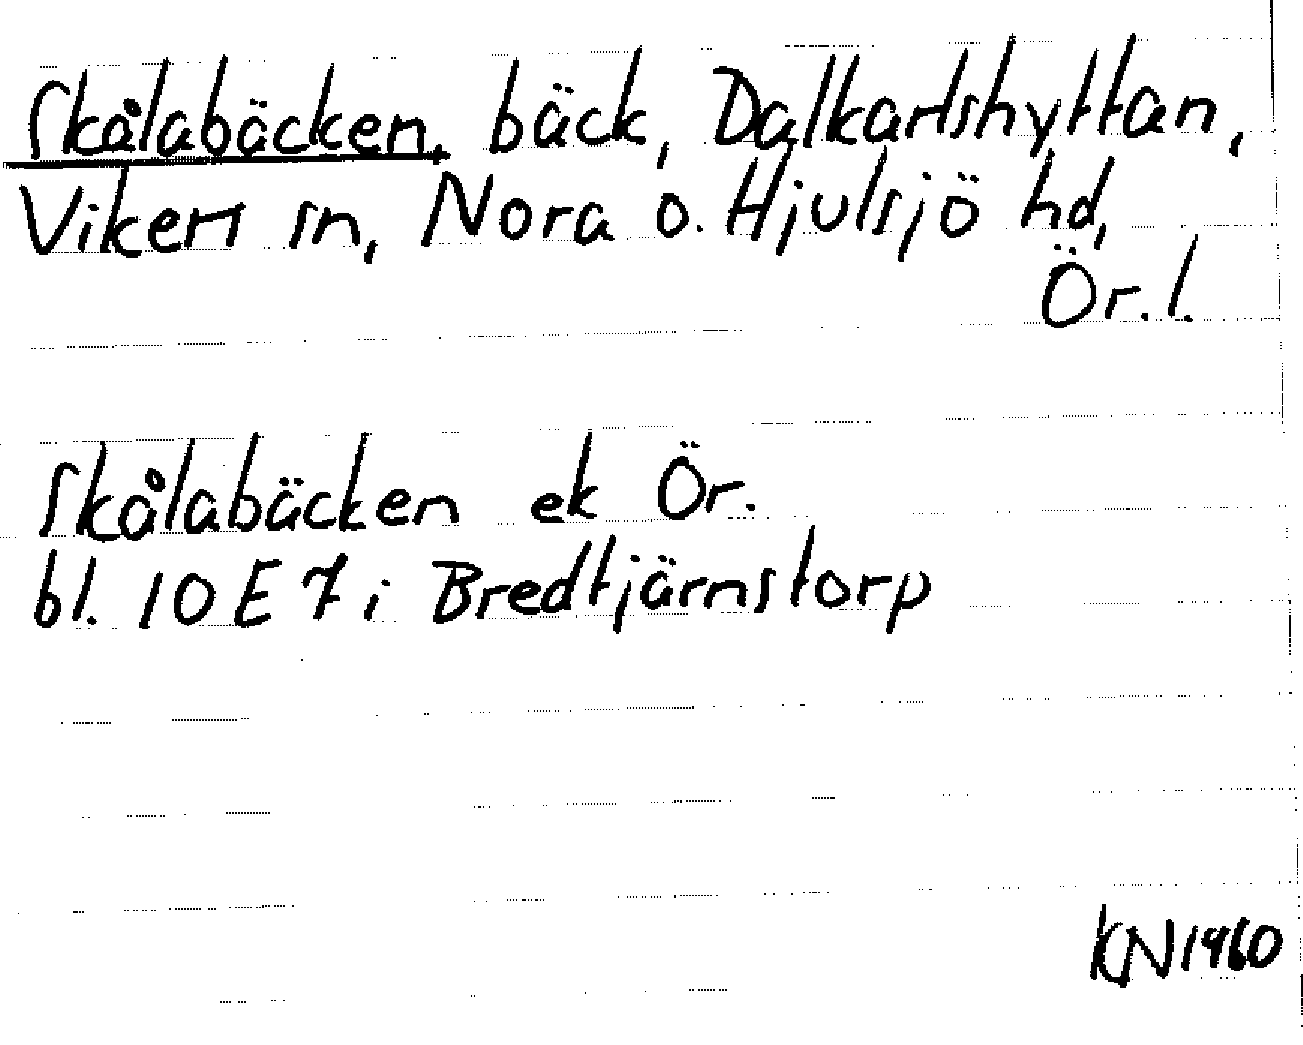 Skålabäcken, bäck, Dalkarlshyttan,
Vikers sn, Nora o. Hjulsjö hd,
Ör. l.
Skålabäcken ek Ör.
bl. 10 E 7 i Bredtjärnstorp
KN 1960